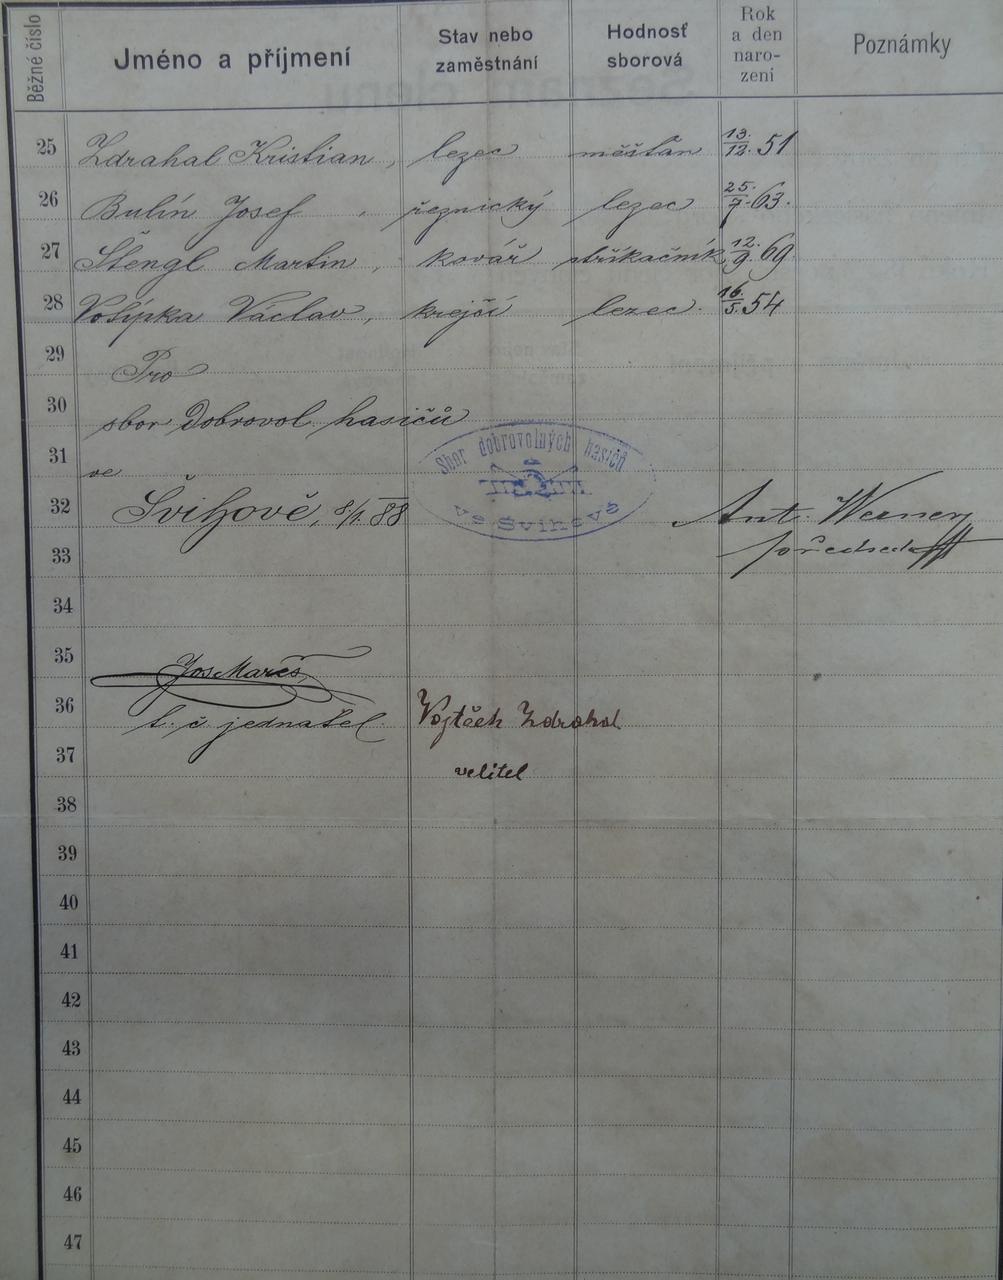 Běžné číslo
Jméno a příjmení
Stav nebo zaměstnání
Hodnosť sborová
Rok a den narození
Poznámky
25 Zdrahal Kristian, lezec měšťan 13./12. 51
26 Bulín Josef řeznický lezec 25./7. 63.
27 Štengl Martin, kovář stříkačník 12./9. 69
28 Vošipka Václav, krejčí lezec. 16./5. 54
29 Pro
30 sbor dobrovol. hasičů
31 ve
Sbor dobrovolných hasičů
32 Švihově, 88
ve Švihově
Ant. Werner
33 předseda
34
35 Jos Mareš,
36 t. č. jednatel Vojtěch Zdrahal
37 velitel
38
39
40
41
42
43
44
45
46
47